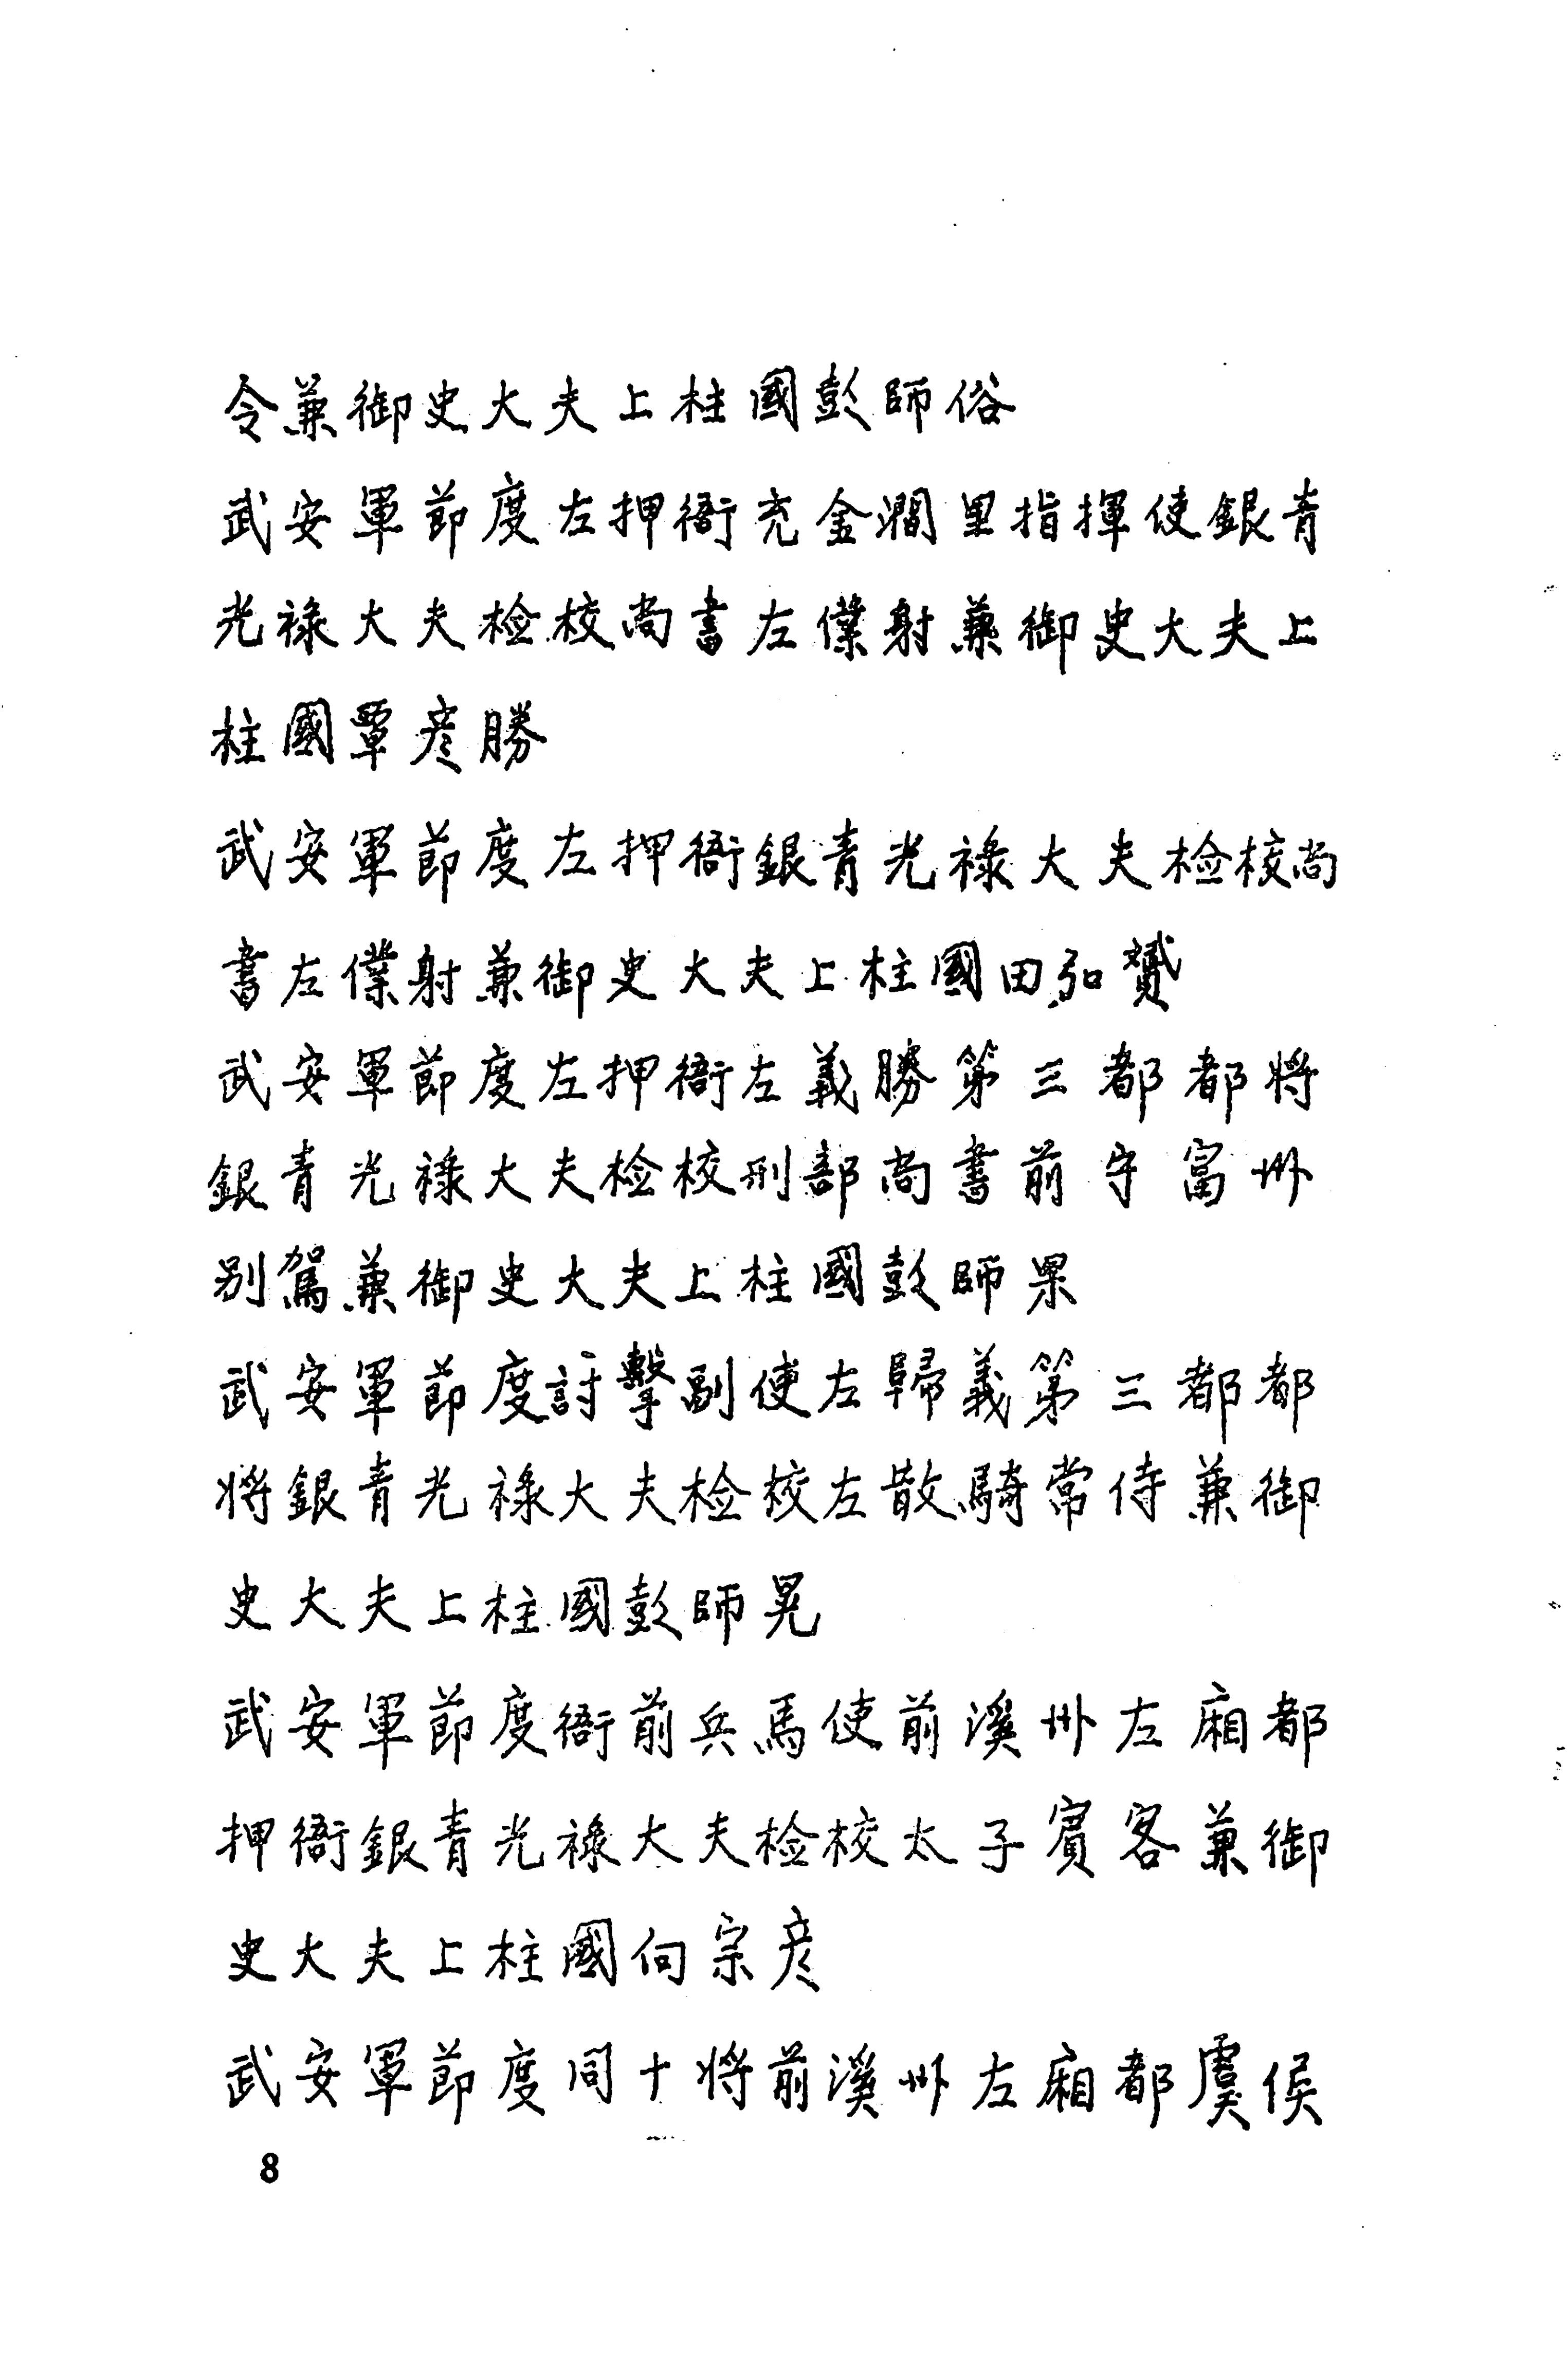 令兼御史大夫上柱國彭師俗
武安軍節度左押衙充金澗里指揮使銀青
光禄大夫检校尚書左僕射兼御史大夫上
柱國覃彦勝
武安軍節度左押衙銀青光禄大夫检校尚
書左僕射兼御史大夫上柱國田弘贇
武安軍節度左押衙左義勝第三都都將
銀青光禄大夫检校刑部尚書前守富州
别駕兼御史大夫上柱國彭師杲
武安軍節度討擊副使左歸義第三都都
將銀青光禄大夫检校左散騎常侍兼御
史大夫上柱國彭師晃
武安軍節度衙前兵馬使前溪州左廂都
押衙銀青光禄大夫检校太子賓客兼御
史大夫上柱國向宗彦
武安軍節度同十將前溪州左廂都虞侯
8